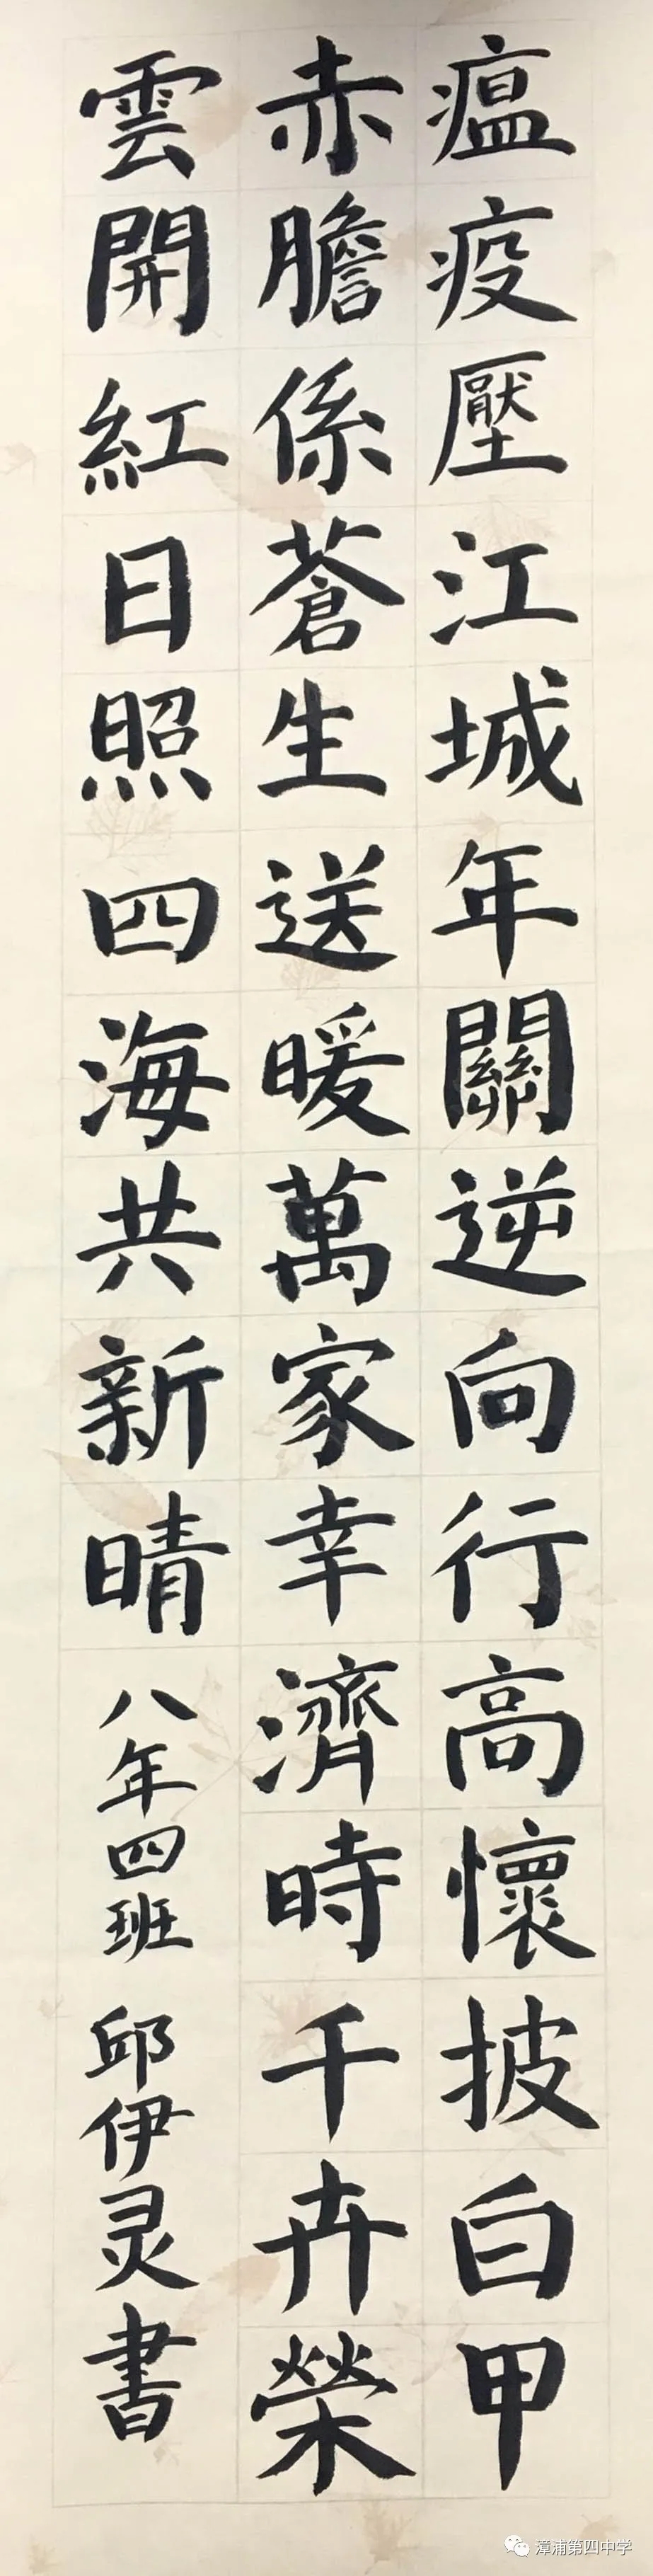 瘟疫壓江城年關逆向行高懷披白甲
赤膽係蒼生送暖萬家幸濟時千卉榮
雲開紅日照四海共新晴
八年四班 邱伊灵書
漳浦第四中学